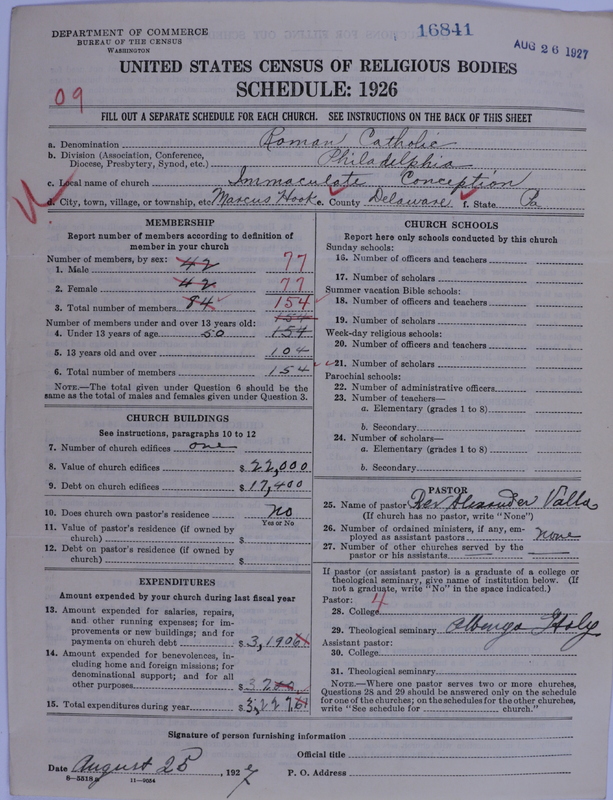 DEPARTMENT OF COMMERCE
BUREAU OF THE CENSUS
WASHINGTON
16841
AUG 26 1927
UNITED STATES CENSUS OF RELIGIOUS BODIES
SCHEDULE: 1926
09
FILL OUT A SEPARATE SCHEDULE FOR EACH CHURCH. SEE INSTRUCTIONS ON THE BACK OF THIS SHEET
a. Denomination Roman Catholic
b. Division (Association, Conference,
Diocese, Presbytery, Synod, etc.) Philadelphia
c. Local name of church Immaculate Conception
d. City, town, village, or township, etc. Marcus Hook e. County Delaware f. State Pa
MEMBERSHIP
Report number of members according to definition of
member in your church
Number of members, by sex:
1. Male 42 77
2. Female 42 77
3. Total number of members 84 154
154
Number of members under and over 13 years old:
4. Under 13 years of age 50 154
5. 13 years old and over 104
6. Total number of members 154
NOTE.—The total given under Question 6 should be the
same as the total of males and females given under Question 3.
CHURCH BUILDINGS
See instructions, paragraphs 10 to 12
7. Number of church edifices one
8. Value of church edifices $ 22,000
9. Debt on church edifices $ 17,400
10. Does church own pastor's residence No
Yes or No
11. Value of pastor's residence (if owned by
church) $
12. Debt on pastor's residence (if owned by
church) $
EXPENDITURES
Amount expended by your church during last fiscal year
13. Amount expended for salaries, repairs,
and other running expenses; for im-
provements or new buildings; and for
payments on church debt $ 3,190
14. Amount expended for benevolences, in-
cluding home and foreign missions; for
denominational support; and for all
other purposes $
15. Total expenditures during year $
CHURCH SCHOOLS
Report here only schools conducted by this church
Sunday schools:
16. Number of officers and teachers
17. Number of scholars
Summer vacation Bible schools:
18. Number of officers and teachers
19. Number of scholars
Week-day religious schools:
20. Number of officers and teachers
21. Number of scholars
Parochial schools:
22. Number of administrative officers
23. Number of teachers—
a. Elementary (grades 1 to 8)
b. Secondary
24. Number of scholars—
a. Elementary (grades 1 to 8)
b. Secondary
PASTOR
25. Name of pastor Rev Alexander Valla
(If church has no pastor, write "None")
26. Number of ordained ministers, if any, em-
ployed as assistant pastors none
27. Number of other churches served by the
pastor or his assistants
If pastor (or assistant pastor) is a graduate of a college or
theological seminary, give name of institution below. (If
not a graduate, write "No" in the space indicated.)
Pastor:
28. College 4
29. Theological seminary Albenga Italy
Assistant pastor:
30. College
31. Theological seminary
NOTE.—Where one pastor serves two or more churches,
Questions 28 and 29 should be answered only on the schedule
for one of the churches; on the schedules for the other churches,
write "See schedule for church."
Signature of person furnishing information
Official title
Date August 25, 1927 P. O. Address
8—5518
11—9054